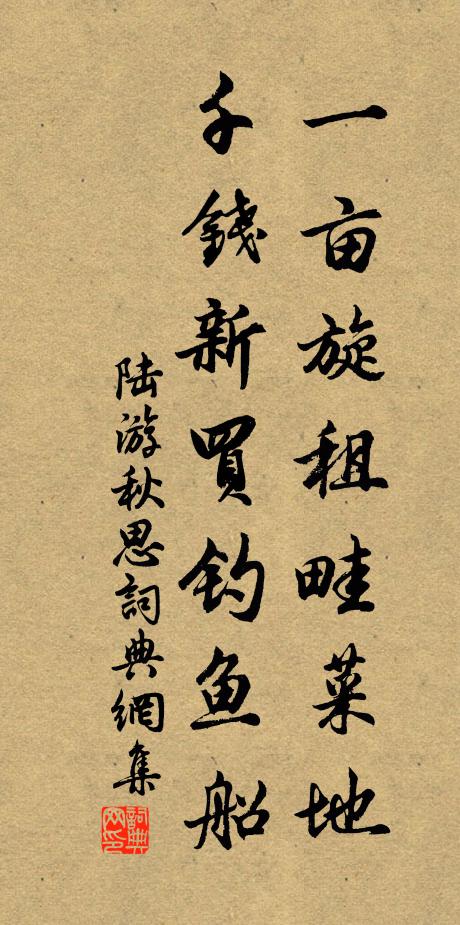 一亩旋租畦菜地
千錢新買钓鱼船
陆游秋思詞典網集
詞典网印